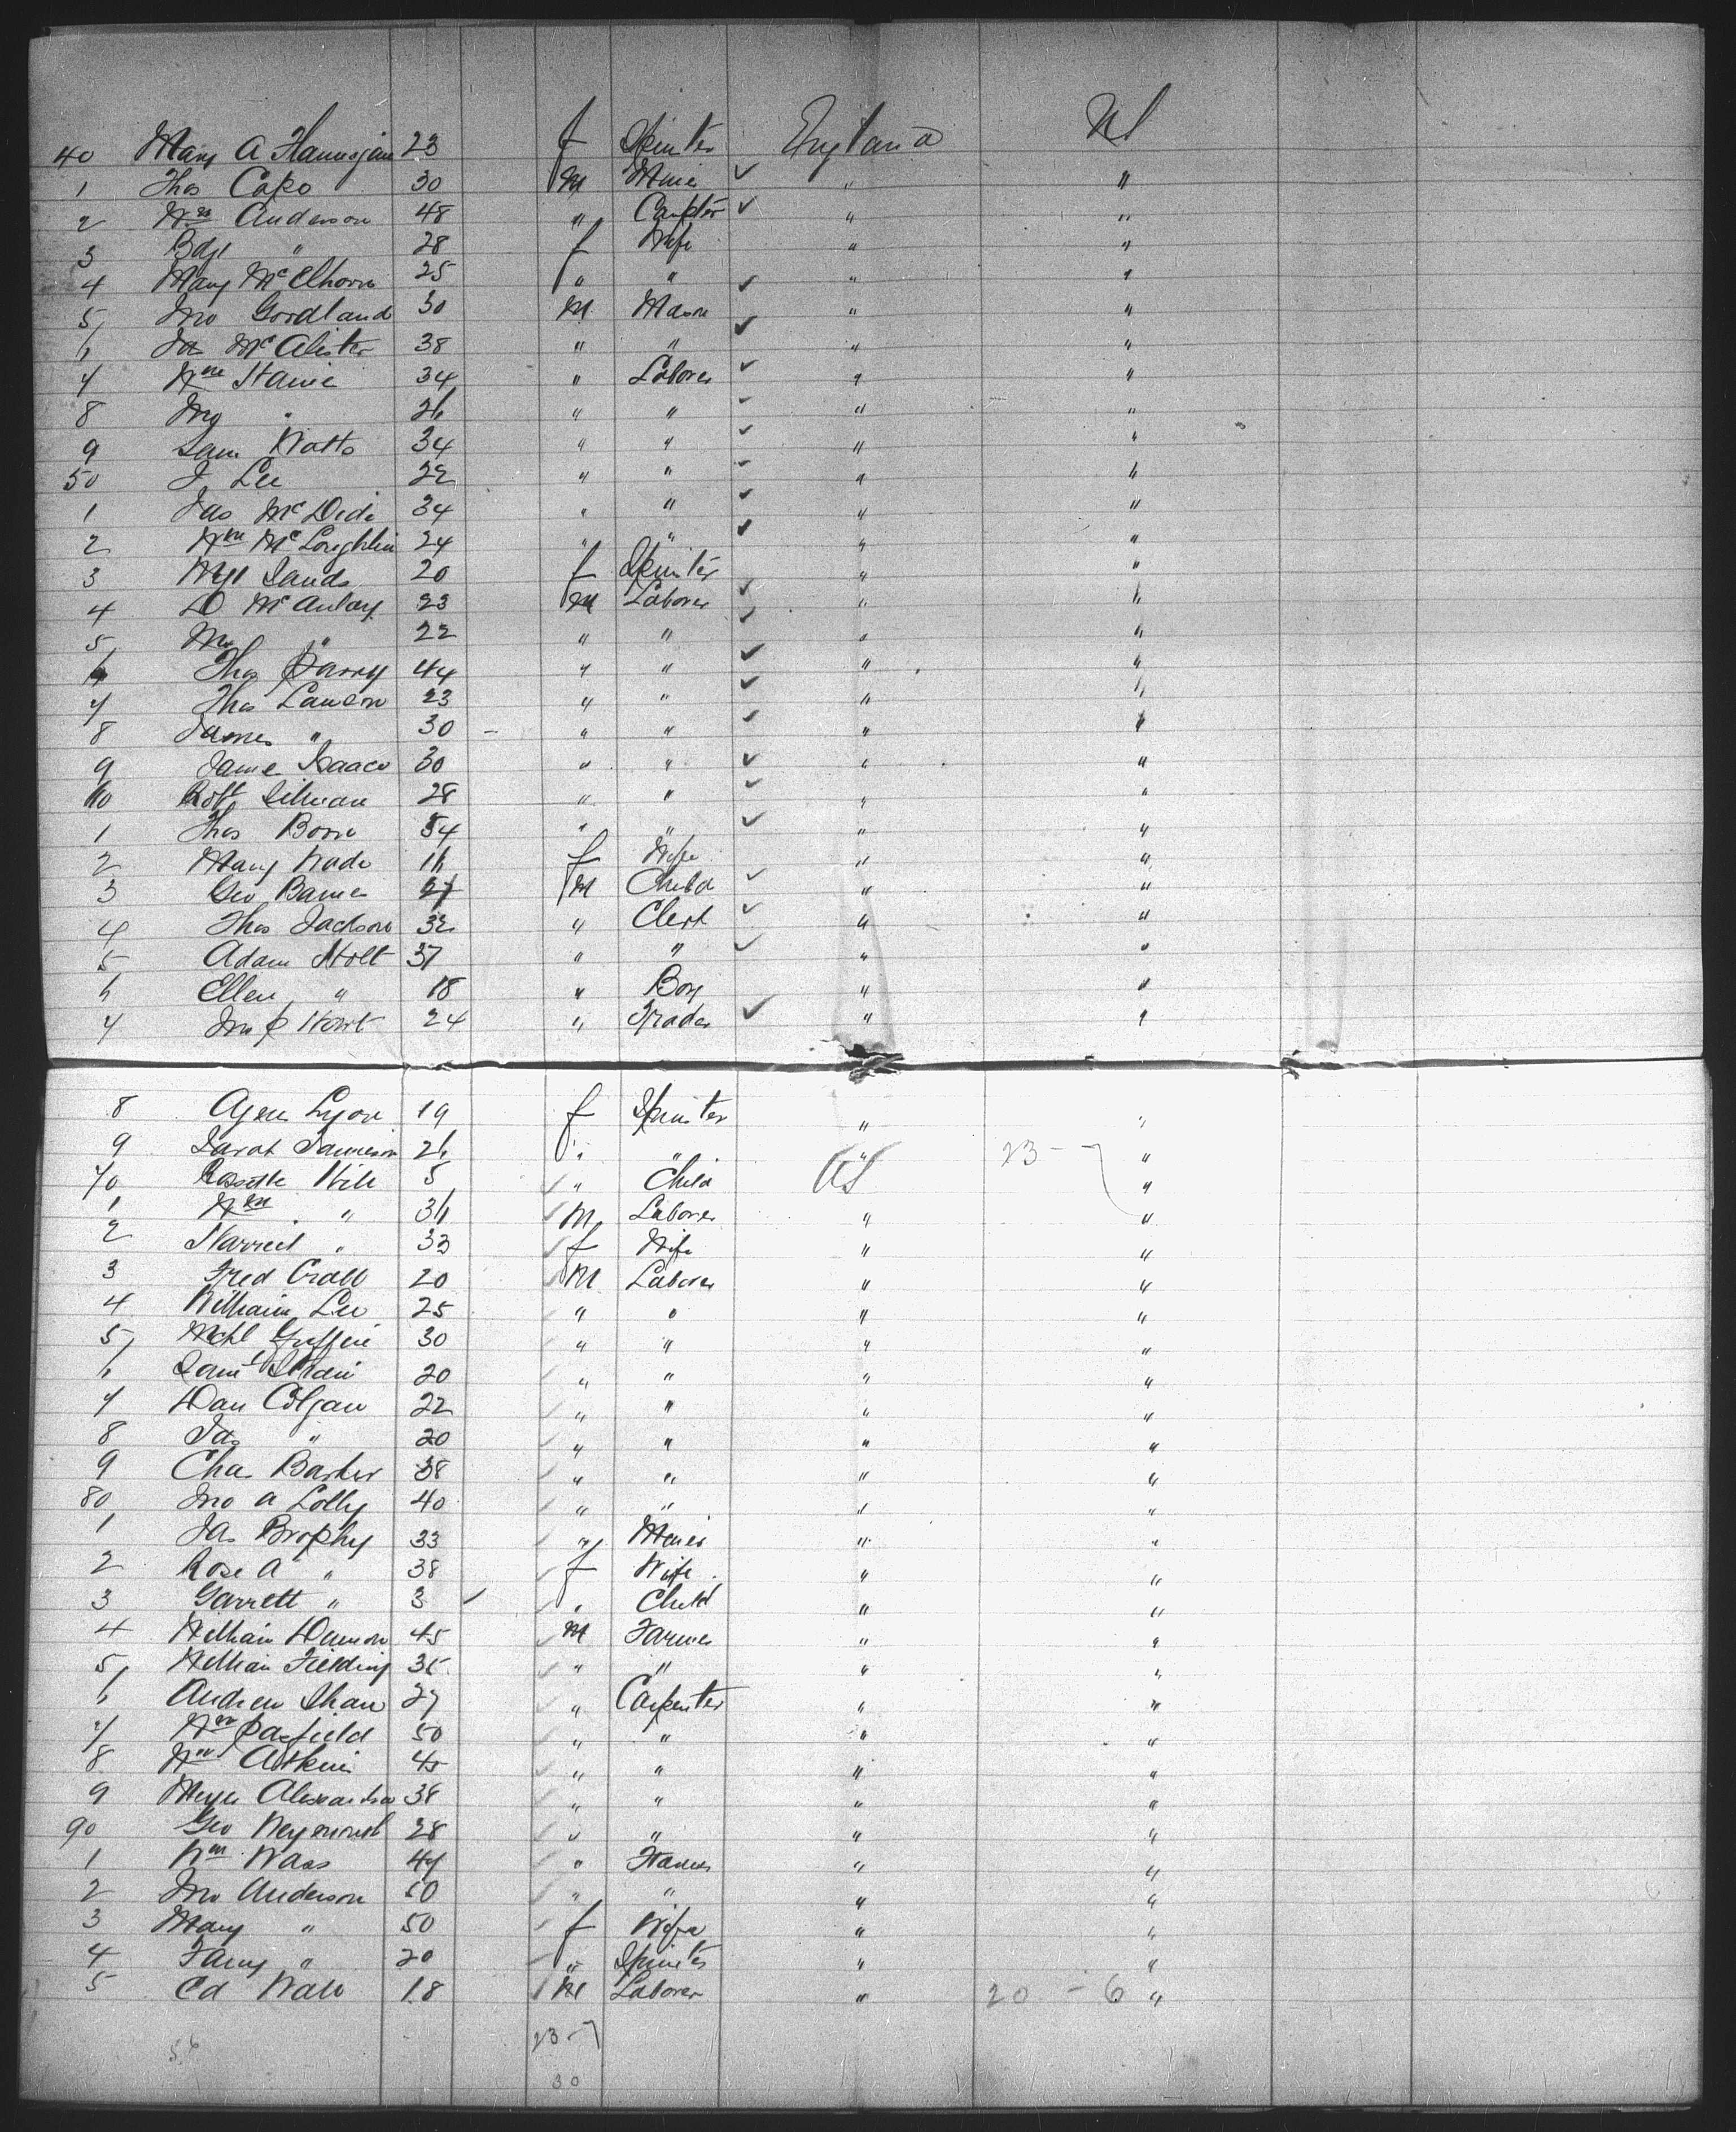 40 Mary A Hannigan 23 f Spinster England US
1 Thos Cape 30 M Miner ✓ " "
2 Wm Anderson 48 " Carpter ✓ " "
3 Bdgt " 28 f Wife " "
4 Mary McElhorn 25 " " ✓ " "
5 Jno Goodland 30 M Mason " "
6 Jas McAlister 38 " " ✓ " "
7 Wm Hawie 34 " Laborer ✓ " "
8 Jno " 26 " " ✓ " "
9 Sam Watts 34 " " ✓ " "
50 J Lee 22 " " ✓ " "
1 Jas McDide 34 " " ✓ " "
2 Wm McLoughlin 24 " " ✓ " "
3 Sands 20 f Spinster " "
4 D McAulay 23 M Laborer ✓ " "
5 " 22 " " ✓ " "
6 Thos Parry 44 " " ✓ " "
7 Thos Lawson 23 " " ✓ " "
8 James " 30 - " " ✓ " "
9 Jame Isaacs 30 " " ✓ " "
60 Robt Silman 28 " " ✓ " "
1 Thos Borne 54 " " ✓ " "
2 Mary Wade 16 f Wife " "
3 Geo Barnes 27 M Child ✓ " "
4 Thos Jackson 32 " Clerk ✓ " "
5 Adam Holt 37 " " ✓ " "
6 Ellen " 18 " Boy " "
7 Jno P Howt 24 " Trader ✓ " "
8 Agen Lyon 19 f Spinster " "
9 Sarah Jamieson 26 " " " 23-7 "
70 Rosette Hill 5 " Child US " "
1 Wm " 36 M Laborer " "
2 Harriet " 33 f Wife " "
3 Fred Crabb 20 M Laborer " "
4 William Lee 25 " " " "
5 Michl Griffin 30 " " " "
6 Saml Strain 20 " " " "
7 Dan Colgan 22 " " " "
8 Jas " 20 " " " "
9 Chas Barker 38 " " " "
80 Jno A Lolly 40 " " " "
1 Jas Brophy 33 " Miner " "
2 Rose A " 38 f Wife " "
3 Garrett " 3 ✓ " Child " "
4 William Damon 45 M Farmer " "
5 William Fielding 35 " " " "
6 Andrew Shaw 27 " Carpenter " "
7 Wm Pacfield 50 " " " "
8 Wm Atkins 45 " " " "
9 Meyer Alexander 38 " " " "
90 Geo Weymouth 28 " " " "
1 Wm Wass 47 " Farmer " "
2 Jno Anderson 50 " " " "
3 Mary " 50 f Wife " "
4 Fanny " 20 " Spinster " "
5 Ed Wall 18 M Laborer " 20 - 6 "
56 23-7
30